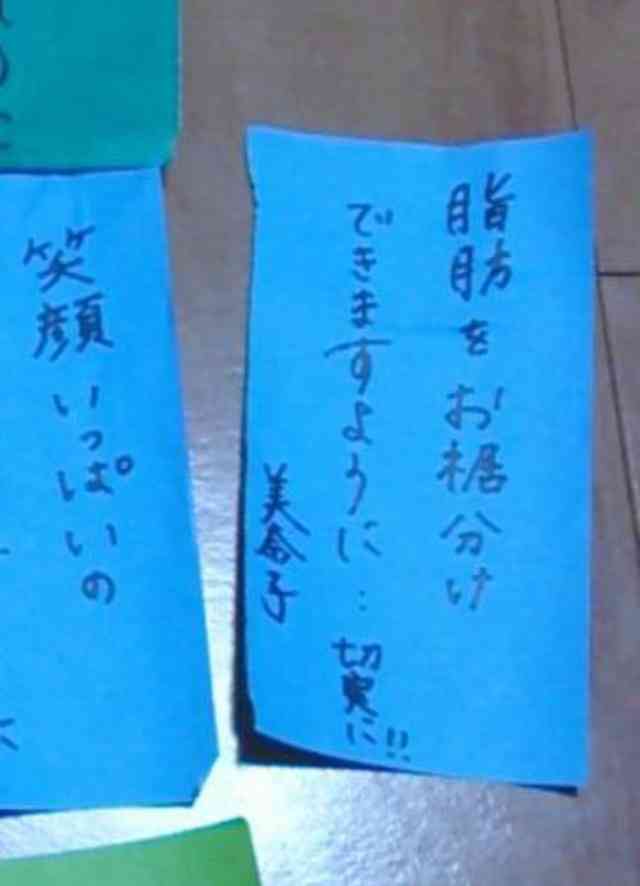 脂肪をお裾分け
できますように… 切実に!!
美命子
笑顔いっぱいの